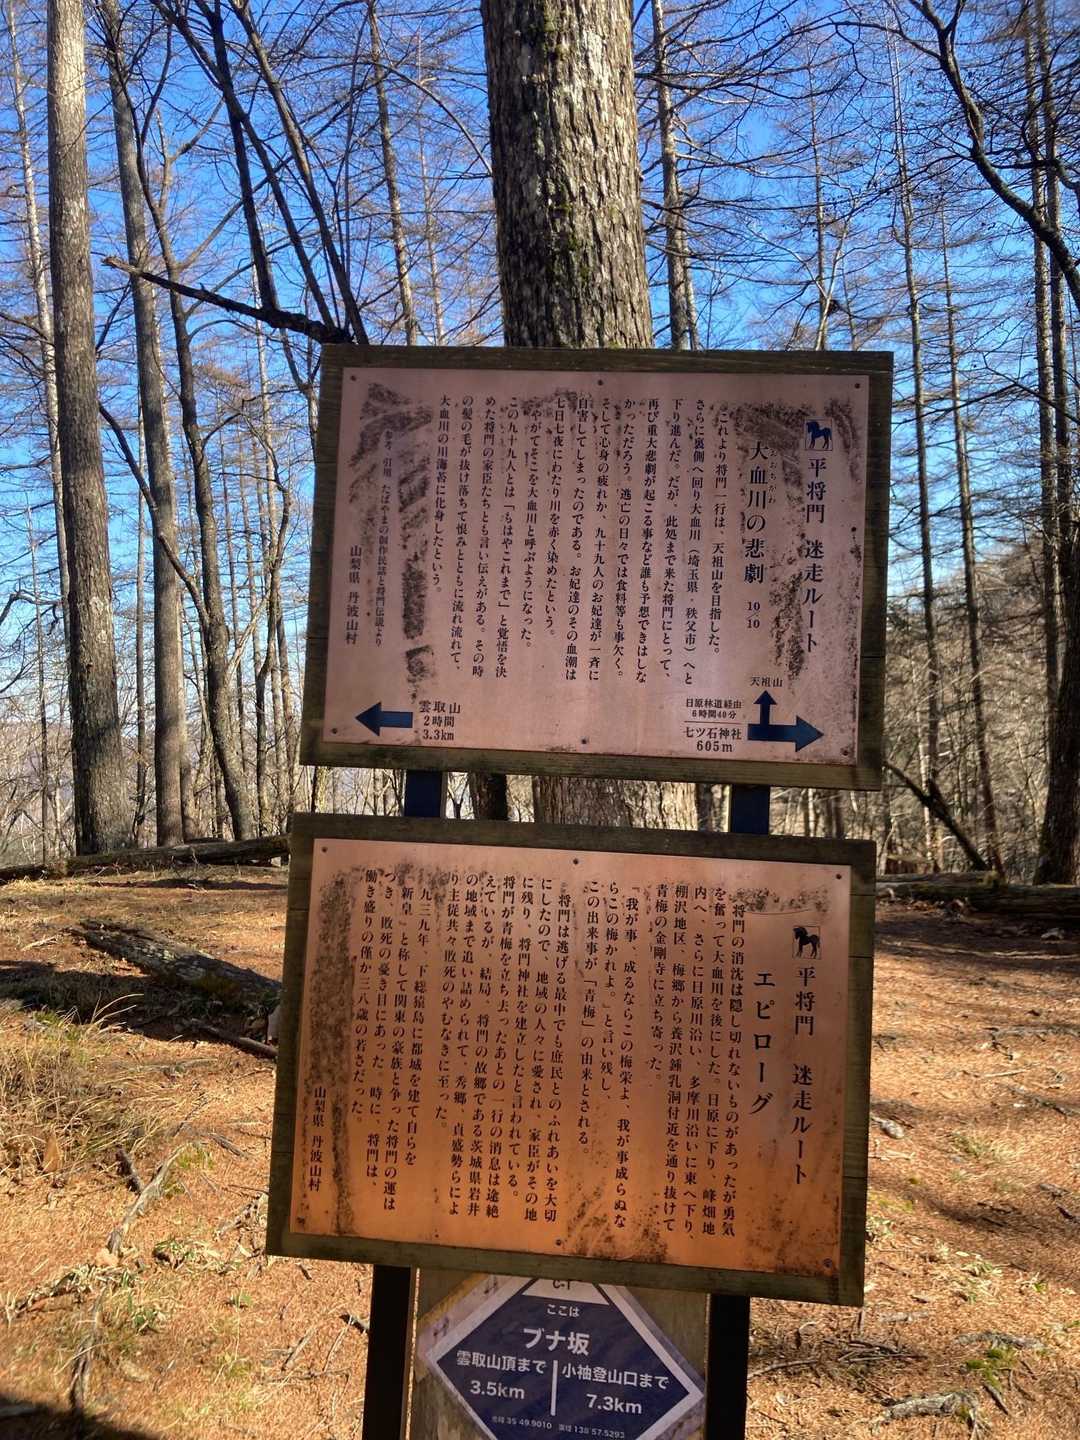 平将門 迷走ルート
大血川の悲劇 10/10
おおちがわ
これより将門一行は、天祖山を目指した。
さらに裏側へ回り大血川（埼玉県・秩父市）へと
下り進んだ。だが、此処まで来た将門にとって、
再び重大悲劇が起こる事など誰も予想できはしな
かっただろう。逃亡の日々では食料等も事欠く。
そして心身の疲れか、九十九人のお妃達が一斉に
自害してしまったのである。お妃達のその血潮は
七日七夜にわたり川を赤く染めたという。
やがてそこを大血川と呼ぶようになった。
この九十九人とは「もはやこれまで」と覚悟を決
めた将門の家臣たちとも言い伝えがある。その時
の髪の毛が抜け落ちて恨みとともに流れ流れて、
大血川の川海苔に化身したという。
参考、引用 たばやまの創作民話と将門伝説より
山梨県 丹波山村
雲取山
2時間
3.3km
天祖山
日原林道経由
6時間40分
七ツ石神社
605m
平将門 迷走ルート
エピローグ
将門の消沈は隠し切れないものがあったが勇気
を奮って大血川を後にした。日原に下り、峰畑地
内へ、さらに日原川沿い、多摩川沿いに東へ下り、
棚沢地区、梅郷から養沢鍾乳洞付近を通り抜けて
青梅の金剛寺に立ち寄った。
「我が事、成るならこの梅栄よ、我が事成らぬな
らこの梅かれよ。」と言い残し、
この出来事が「青梅」の由来とされる。
将門は逃げる最中でも庶民とのふれあいを大切
にしたので、地域の人々に愛され、家臣がその地
に残り、将門神社を建立したと言われている。
将門が青梅を立ち去ったあとの一行の消息は途絶
えているが、結局、将門の故郷である茨城県岩井
の地域まで追い詰められて、秀郷、貞盛勢らによ
り主従共々敗死のやむなきに至った。
九三九年、下総猿島に都城を建て自らを
「新皇」と称して関東の豪族と争った将門の運は
つき、敗死の憂き目にあった。時に、将門は、
働き盛りの僅か三八歳の若さだった。
山梨県 丹波山村
ここは
ブナ坂
雲取山頂まで
3.5km
小袖登山口まで
7.3km
北緯 35 49.9010 東経 138 57.5293